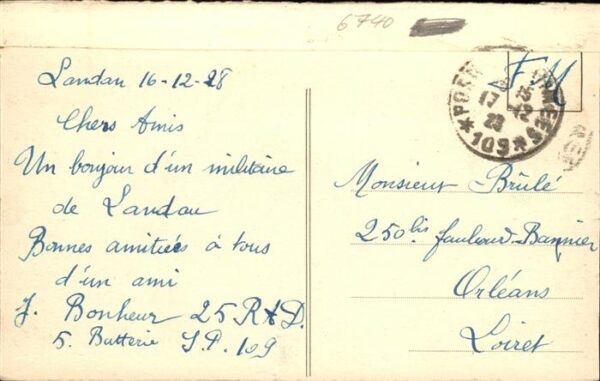 6740
Landau 16-12-28
Chers Amis
Un bonjour d'un militaire
de Landau
Bonnes amitiées à tous
d'un ami
J. Bonheur 25 R.A.D.
5. Batterie S.P. 109
FM
*POSTE
ARMEES*
17
12
28
109
Monsieur Brûlé
250bis faubourd-Bannier
Orléans
Loiret